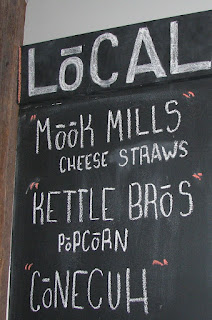 LōCAL
"MōōK MILLS"
CHEESE STRAWS
"KETTLE BRōS"
PōPCōRN
"CōNECUH"